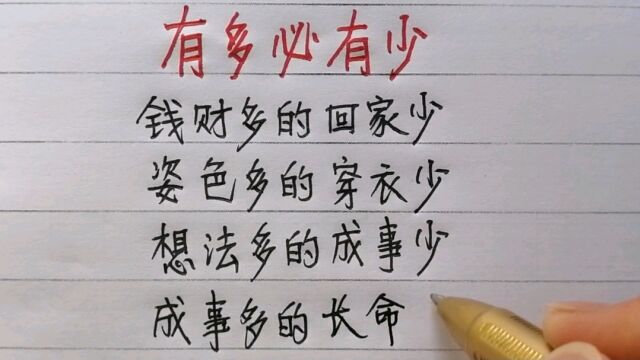 有多必有少
钱财多的回家少
姿色多的穿衣少
想法多的成事少
成事多的长命